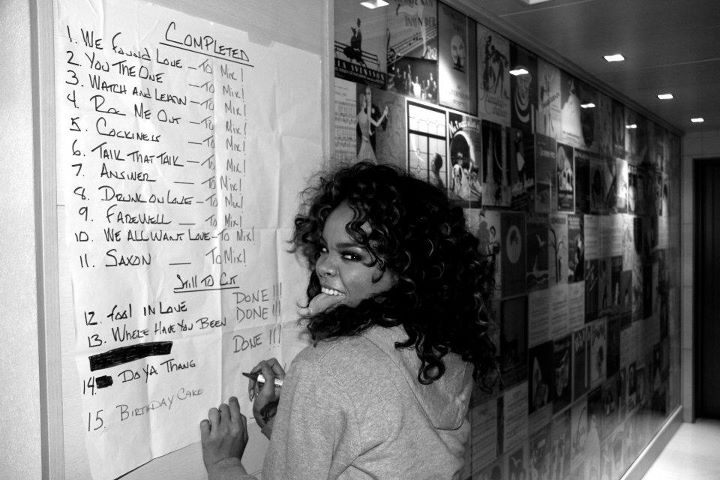 COMPLETED
1. WE FOUND LOVE - TO MIX!
2. YOU THE ONE - TO MIX!
3. WATCH AND LEARN - TO MIX!
4 ROC ME OUT - TO MIX!
5. COCKINESS - TO MIX!
6. TALK THAT TALK - TO MIX!
7. ANSWER - TO MIX!
8. DRUNK ON LOVE - TO MIX!
9. FAREWELL - TO MIX!
10. WE ALL WANT LOVE - TO MIX!
11. SAXON - TO MIX!
STILL TO CUT
12. FOOL IN LOVE DONE!!!
13. WHERE HAVE YOU BEEN DONE!!!
14. DO YA THANG DONE!!!
15. BIRTHDAY CAKE